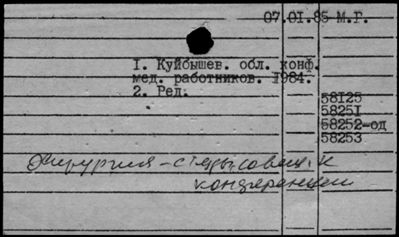 07.01.85 М.Г.
1. Куйбышев. обл. конф.
мед. работников. 1984.
2. Ред.
58125
58251
58252-од
58253
Хирургия - съезды, совещ. и
конференции